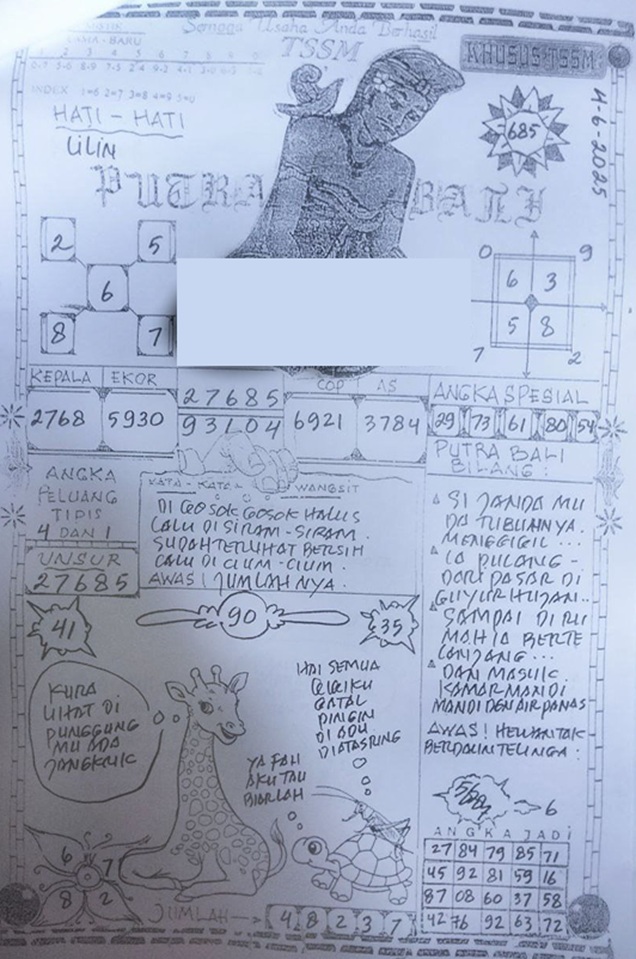 Semoga Usaha Anda Berhasil
TSSM
KHUSUS TSSM
- BARU
1 2 3 4 5 6 7 8 9 0
INDEX 1=6 2=7 3=8 4=9 5=0
HATI - HATI
LILIN
685
4-6-2025
PUTRA BALI
2 5
6
8 7
0 9
6 3
5 8
7 2
KEPALA EKOR
2768 5930
27685
93104
COP AS
6921 3784
ANGKA SPESIAL
29 73 61 80 54
ANGKA
PELUANG
TIPIS
4 DAN 1
UNSUR
27685
KATA - KATA WANGSIT
DI GOSOK GOSOK HALUS
LALU DI SIRAM - SIRAM.
SUDAH TERLIHAT BERSIH
LALU DI CIUM - CIUM.
AWAS! JUMLAHNYA.
PUTRA BALI
BILANG:
SI JANDA MU
DA TUBUHNYA.
MENGGIGIL ...
IA PULANG -
DARI PASAR DI
GUYUR HUJAN..
SAMPAI DI RU
MAH IA BERTE
LANJANG ...
DAN MASUK.
KAMAR MANDI
MANDI DENAIR PANAS
AWAS! HEWAN TAK
BERDAUN TELINGA:
41
90
35
KURA
LIHAT DI
PUNGGUNG
MU ADA
JANGKRIK
HAI SEMUA
GATAL
PINGIN
DI ADU
DIATAS RING
YA PAH
AKU TAU
BIARLAH
6
ANGKA JADI
27 84 79 85 71
45 92 81 59 16
87 08 60 37 58
42 76 92 63 72
6 7
8 2
JUMLAH 4 8 2 3 7